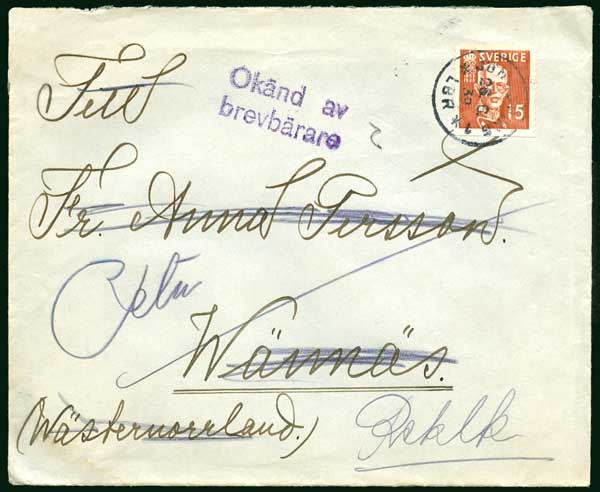 Till
Okänd av
brevbärare
2
SVERIGE
15
LBR
Fr. Anna Persson.
Retur
Wännäs.
(Wästernorrland.)